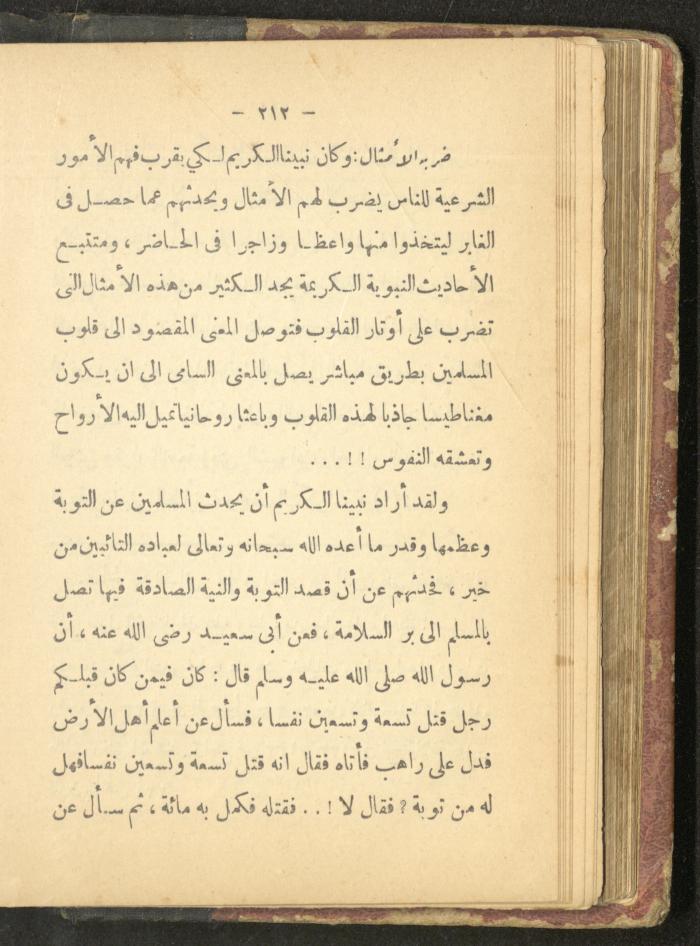 — ٢١٢ —
ضربه الأمثال : وكان نبينا الكريم لكي يقرب فهم الأمور
الشرعية للناس يضرب لهم الأمثال ويحدثهم عما حصل فى
الغابر ليتخذوا منها واعظا وزاجرا فى الحاضر ، ومتتبع
الأحاديث النبوية الكريمة يجد الكثير من هذه الأمثال التى
تضرب على أوتار القلوب فتوصل المعنى المقصود الى قلوب
المسلمين بطريق مباشر يصل بالمعنى السامى الى ان يكون
مغناطيسا جاذبا لهذه القلوب وباعثا روحانيا تميل اليه الأرواح
وتعشقه النفوس ! ! . . .
ولقد أراد نبينا الكريم أن يحدث المسلمين عن التوبة
وعظمها وقدر ما أعده الله سبحانه وتعالى لعباده التائبين من
خير ، فحدثهم عن أن قصد التوبة والنية الصادقة فيها تصل
بالمسلم الى بر السلامة ، فعن أبى سعيد رضى الله عنه ، أن
رسول الله صلى الله عليه وسلم قال : كان فيمن كان قبلكم
رجل قتل تسعة وتسعين نفسا ، فسأل عن أعلم أهل الأرض
فدل على راهب فأتاه فقال انه قتل تسعة وتسعين نفسا فهل
له من توبة ? فقال لا ! . . فقتله فكمل به مائة ، ثم سأل عن